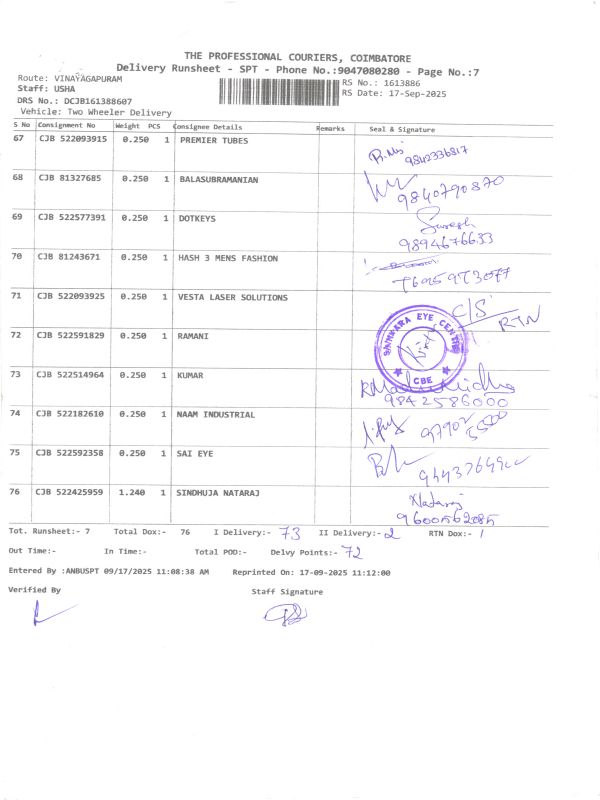 THE PROFESSIONAL COURIERS, COIMBATORE
Delivery Runsheet - SPT - Phone No.:9047080280 - Page No.:7
Route: VINAYAGAPURAM RS No.: 1613886
Staff: USHA RS Date: 17-Sep-2025
DRS No.: DCJB161388607
Vehicle: Two Wheeler Delivery
S No Consignment No Weight PCS Consignee Details Remarks Seal & Signature
67 CJB 522093915 0.250 1 PREMIER TUBES 9842336817
68 CJB 81327685 0.250 1 BALASUBRAMANIAN 9840790870
69 CJB 522577391 0.250 1 DOTKEYS Suresh
9894676633
70 CJB 81243671 0.250 1 HASH 3 MENS FASHION
71 CJB 522093925 0.250 1 VESTA LASER SOLUTIONS C/S
RTN
72 CJB 522591829 0.250 1 RAMANI SANKARA EYE CENTRE
CBE
73 CJB 522514964 0.250 1 KUMAR
9842586000
74 CJB 522182610 0.250 1 NAAM INDUSTRIAL
75 CJB 522592358 0.250 1 SAI EYE
76 CJB 522425959 1.240 1 SINDHUJA NATARAJ Nataraj
9600562085
Tot. Runsheet:- 7 Total Dox:- 76 I Delivery:- 73 II Delivery:- 2 RTN Dox:- 1
Out Time:- In Time:- Total POD:- Delvy Points:- 72
Entered By :ANBUSPT 09/17/2025 11:08:38 AM Reprinted On: 17-09-2025 11:12:00
Verified By Staff Signature